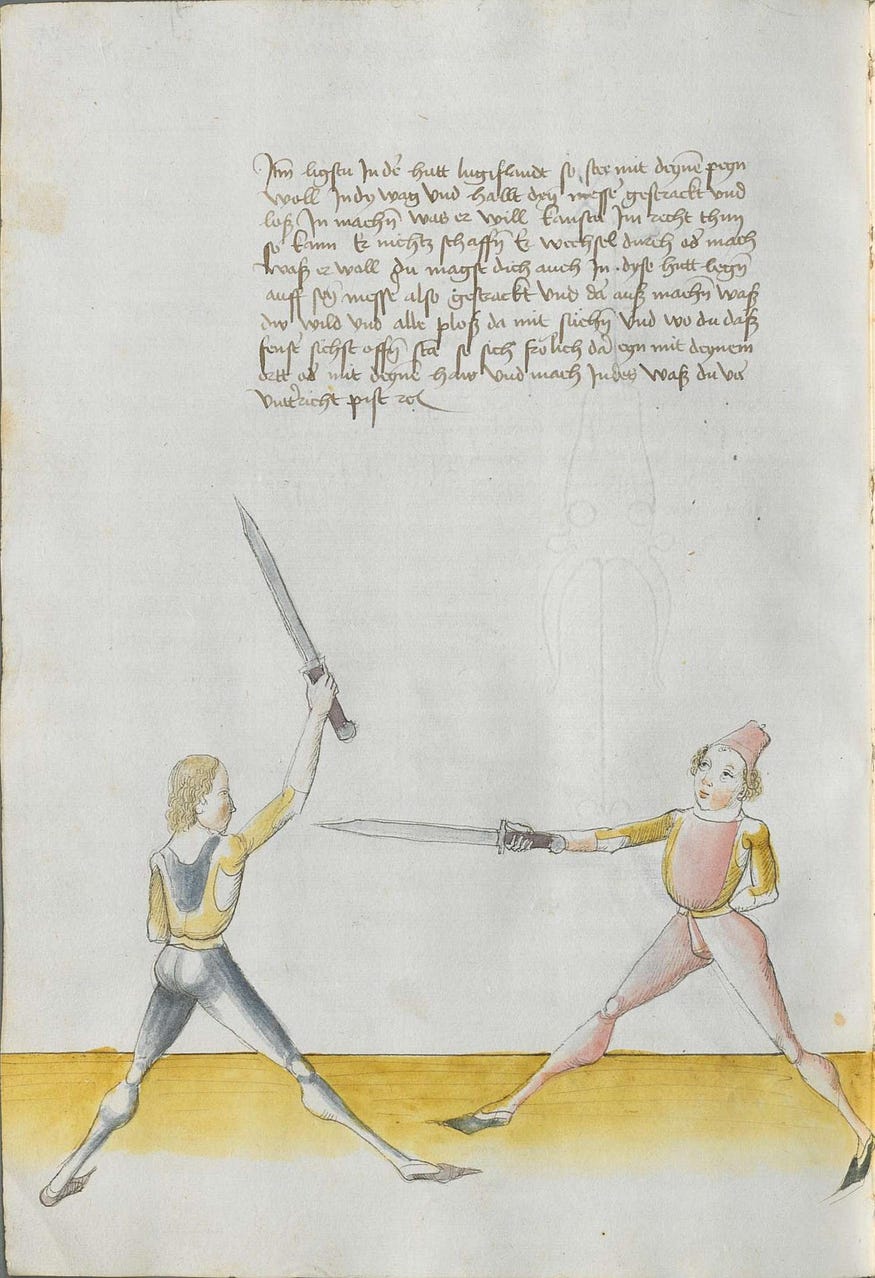 Itm ligstu In de hutt lugißlandt so stee mit deyne peyn
woll In dy wag vnd hallt deyn messe gestrackt vnd
loß In mach̄n was er will kanstu Im recht thun
so kann Er nichtz schaff̄n Er wechsel durch od mach
waß er woll du magst dich auch In dyse hutt leḡn
auff seyn messe also gestrackt vnd da auß mach̄n waß
dw wild vnd alle ploß da mit such̄n vnd wo du daß
fenst sichst off̄n ste so sich frölich da eyn mit deynem
ortt od mit deyne haw vnd mach Indes waß du vo
vntericht pist